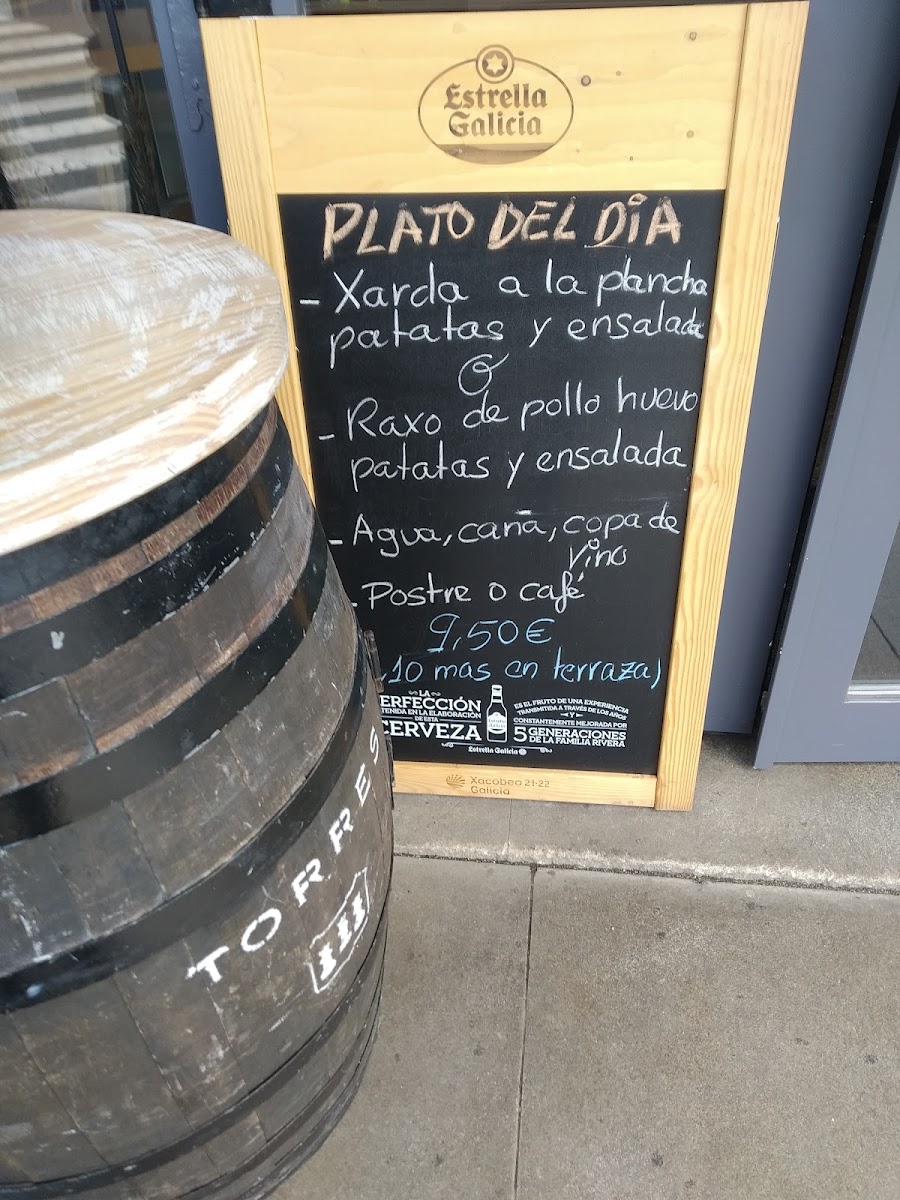 Estrella
Galicia
PLATO DEL DÍA
- Xarda a la plancha
patatas y ensalada
O
- Raxo de pollo huevo
patatas y ensalada
- Agua, caña, copa de
vino
- Postre o café
9,50€
,10 mas en terraza)
LA
ERFECCIÓN
TENIDA EN LA ELABORACIÓN
DE ESTA
CERVEZA
Estrella Galicia
ES EL FRUTO DE UNA EXPERIENCIA
TRANSMITIDA A TRAVÉS DE LOS AÑOS
Y
CONSTANTEMENTE MEJORADA POR
5 GENERACIONES
DE LA FAMILIA RIVERA
Estrella Galicia
Xacobeo 21·22
Galicia
TORRES